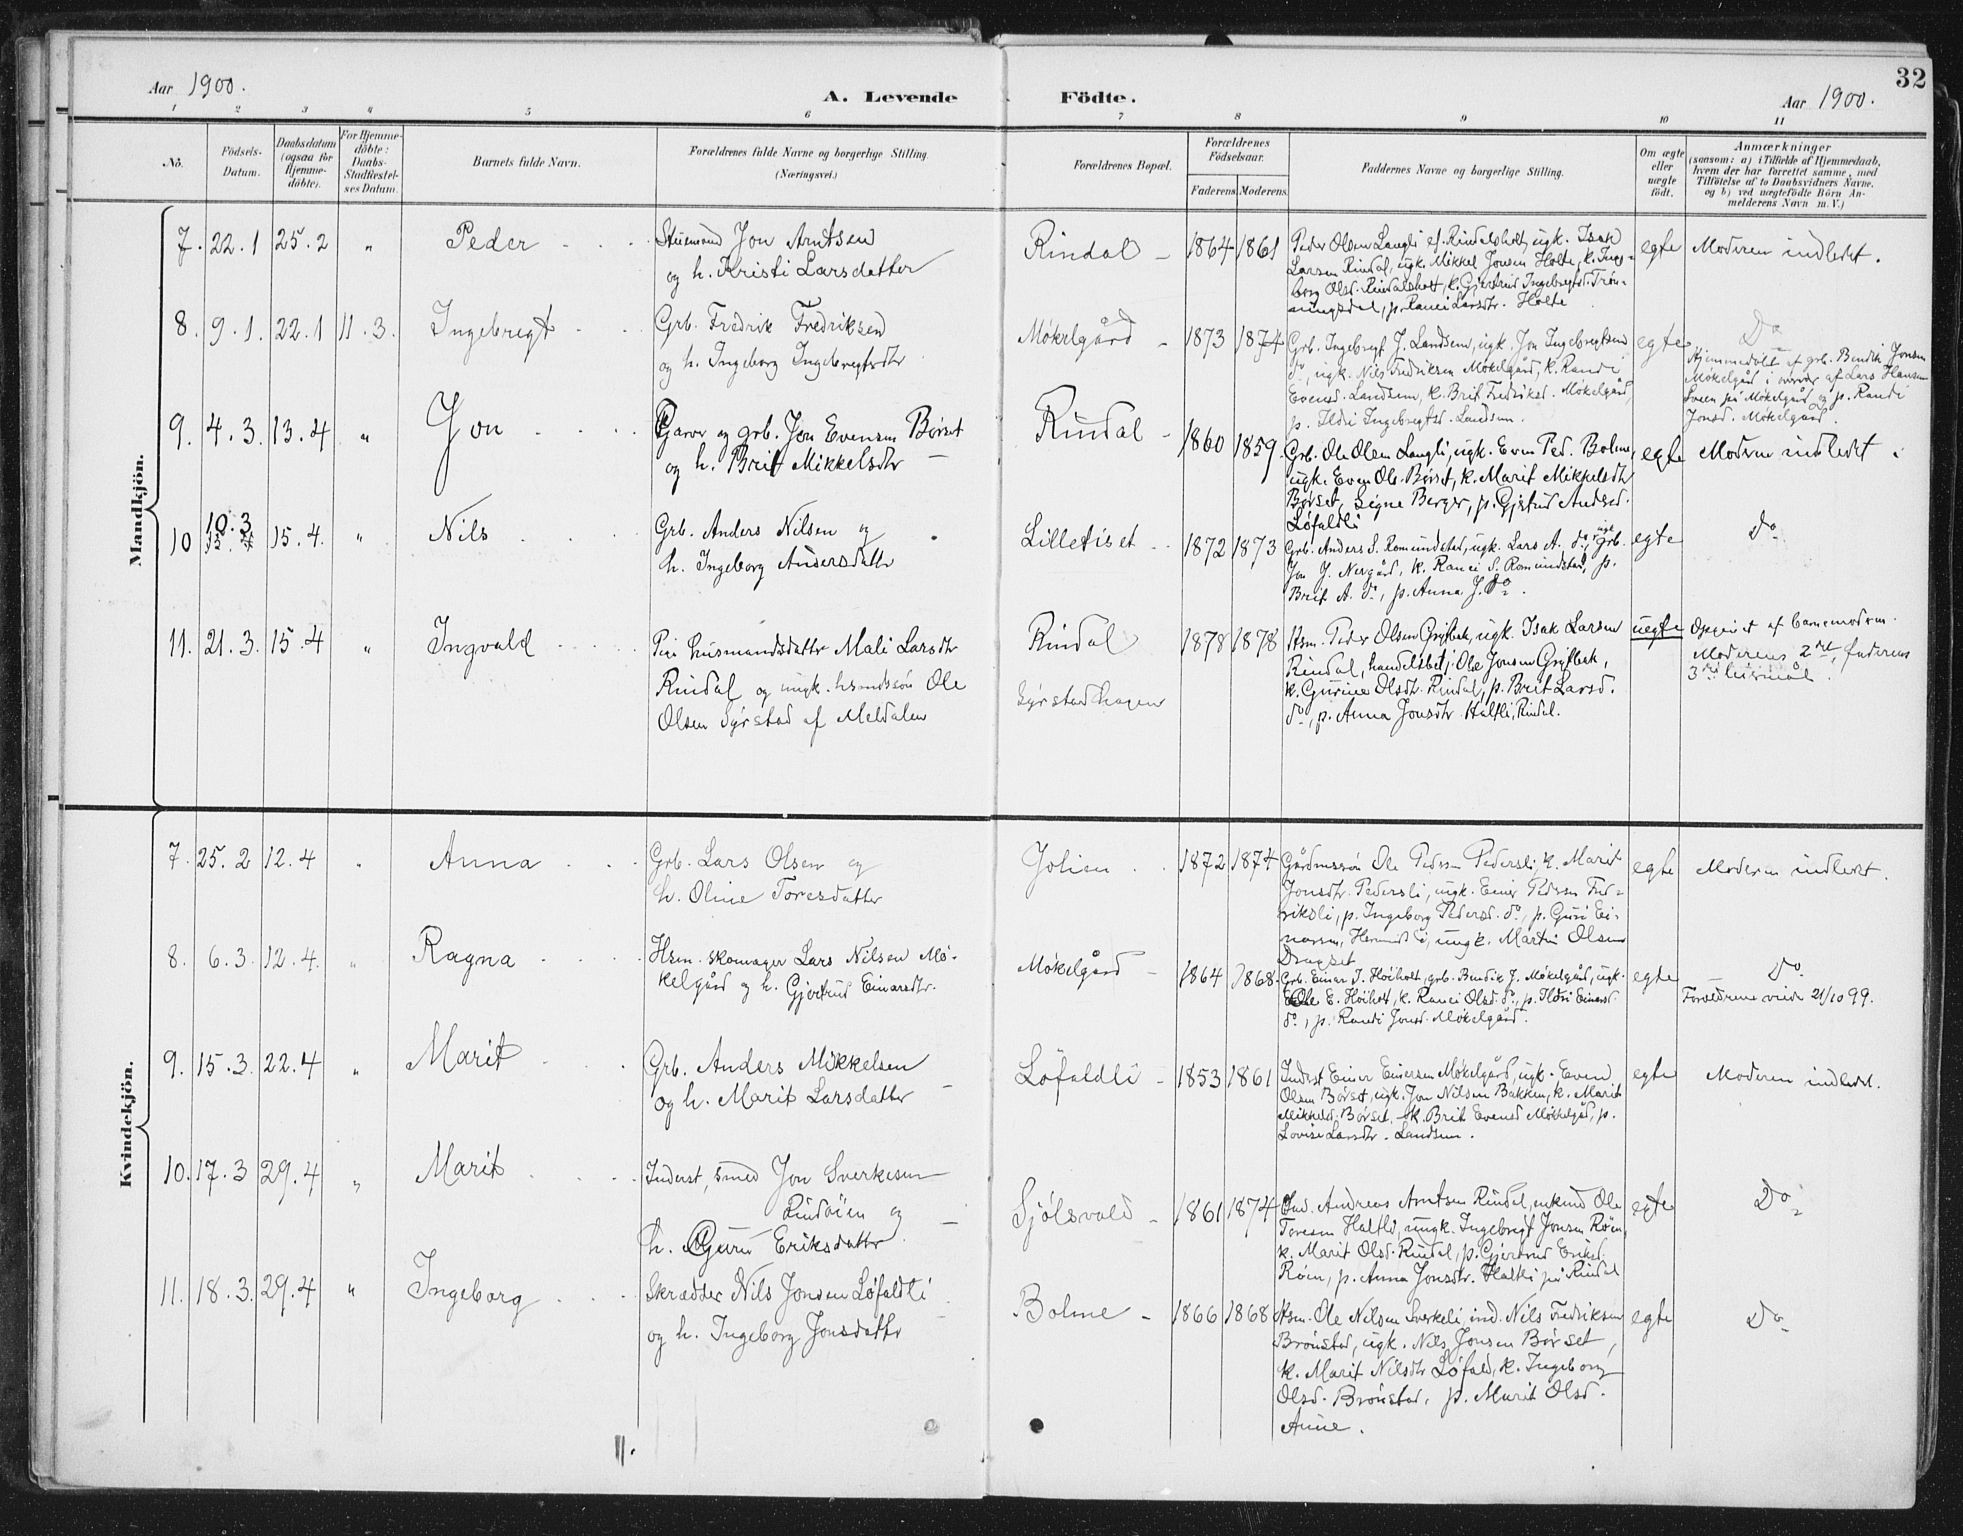 Aar 1900.
A. Levende Födte.
Aar 1900.
32
1 2 3 4 5 6 7 8 9 10 11
Nò.
Födsels-Datum.
Daabsdatum (ogsaa for Hjemme-döbte).
For Hjemme-döbte: Daabs-Stadfæstel-ses Datum.
Barnets fulde Navn.
Forældrenes fulde Navne og borgerlige Stilling.
(Næringsvei.)
Forældrenes Bopæl.
Forældrenes Födselsaar.
Faderens Moderens
Faddernes Navne og borgerlige Stilling.
Om ægte eller uægte födt.
Anmærkninger
(saasom: a) i Tilfælde af Hjemmedaab,
hvem der har forrettet samme, med
Tilföielse af to Daabsvidners Navne,
og b) ved uægtefödte Börn An-
melderens Navn m. V.)
Mandkjön.
7. 22.1 25.2 " Peder
Jon Arntsen
og h. Kristi Larsdatter
Rindal 1864 1861
Peder Olsen Langli af Rindalsholt, ugk. Isak
Larsen Rindal, ugk. Mikkel Jonsen Holte, k. Inge-
borg Olsd. Rindalsholt, k. Gjertrud Ingebregtsd. Trøn-
ningsdal, p. Ranei Larsdtr. Holte
egte Moderen indledet.
8. 9.1. 22.1 11.3. Ingebregt
Grb. Fredrik Fredriksen
og h. Ingeborg Ingebregtsdtr
Møkelgård 1873 1874
Grb. Ingebregt J. Landsem, ugk. Jon Ingebregtsen
do, ugk. Nils Fredriksen Møkelgård, k. Randi
Evensd. Landsem, k. Brit Fredriksd. Møkelgård,
p. Ildri Ingebregtsd. Landsem.
egte Do
Hjemmedøbt af grb. Bendik Jonsen
Møkelgård i nærvær af Lars Hansen
Sveen på Møkelgård og p. Randi
Jonsd. Møkelgård.
9. 4.3. 13.4 " Jon
Garver og grb. Jon Evensen Børset
og h. Brit Mikkelsdtr
Rindal 1860 1859
Grb. Ole Olsen Langli, ugk. Even Ped. Bolme,
ugk. Even Ols. Børset, k. Marit Mikkelsdtr
Børset, Signe Berger, p. Gjertrud Andersd.
Løfaldli
egte Moderen indledet
10 10.3 15.4. " Nils
Grb. Anders Nilsen og
h. Ingeborg Andersdatter
Lilletiset 1872 1873
Grb. Anders S. Romundstad, ugk. Lars A. do, grb.
Jon J. Nergård, k. Ranei S. Romundstad, p.
Brit A. do, p. Anna J. do.
egte Do
11. 21.3. 15.4 " Ingvald
Pige husmandsdatter Mali Larsdtr
Rindal og ungk. husmdssøn Ole
Olsen Syrstad af Meldalen
Rindal
Syrstadhagen
1878 1878
Hsm. Peder Olsen Grytbak, ugk. Isak Larsen
Rindal, handelsbetj. Ole Jonsen Grytbak,
k. Gurine Olsdtr. Rindal, p. Brit Larsd.
do, p. Anna Jonsdtr Haltli, Rindal.
uegte Opgivet af barnemoderen.
Moderens 2det, faderens
3die leiermål.
Kvindekjön.
7. 25.2 12.4 " Anna
Grb. Lars Olsen og
h. Oline Toresdatter
Jolien 1872 1874
Gårdmssøn Ole Pedersen Pedersli, k. Marit
Jonsdtr. Pedersli, ungk. Einar Pedersen Fred-
riksli, p. Ingeborg Pedersd. do, p. Guri Ei-
ungk. Martin Olsen
Dragset
egte Moderen indledet.
8. 6.3. 12.4. " Ragna
Hsm. skomager Lars Nilsen Mø-
kelgård og h. Gjertrud Einarsdtr.
Møkelgård 1864 1868
Grb. Einar J. Høiholt, grb. Bendik J. Møkelgård, ugk.
Ole E. Høiholt, k. Ranei Olsd. do, p. Ildri Einarsd.
do, p. Randi Jonsd. Møkelgård.
egte Do
Forældrene viede 21/10 99.
9. 15.3. 22.4 " Marit
Grb. Anders Mikkelsen
og h. Marit Larsdatter
Løfaldli 1853 1861
Inderst Einar Einarsen Møkelgård, ugk. Even
Olsen Børset, ugk. Jon Nilsen Bakken, k. Marit
Mikkelsd. Børset, k. Brit Evensd Møkkelgård, p.
Lovise Larsdtr. Landsem.
egte Moderen indledet.
10. 17.3 29.4 " Marit
Inderst, smed Jon Sverkesen
Rindöien og
h. Guru Eriksdatter
Sjølsvold 1861 1874
Ind. Andreas Arntsen Rindal, enkmd Ole
Toresen Haltli, ungk. Ingebregt Jonsen Røen,
k. Marit Olsd. Rindal, p. Gjertrud Eriksd.
Røen, p. Anna Jonsdtr. Haltli på Rindal
egte Do
11. 18.3. 29.4 " Ingeborg
Skrædder Nils Jonsen Løfaldli
og h. Ingeborg Jonsdatter
Bolme 1866 1868
Hsm. Ole Nilsen Sverkeli, ind. Nils Fredriksen
Brønstad, ugk. Nils Jonsen Børset,
k. Marit Nilsdtr Løfald, k. Ingeborg
Olsd. Brønstad, p. Marit Olsd.
Aune.
egte Do
11.